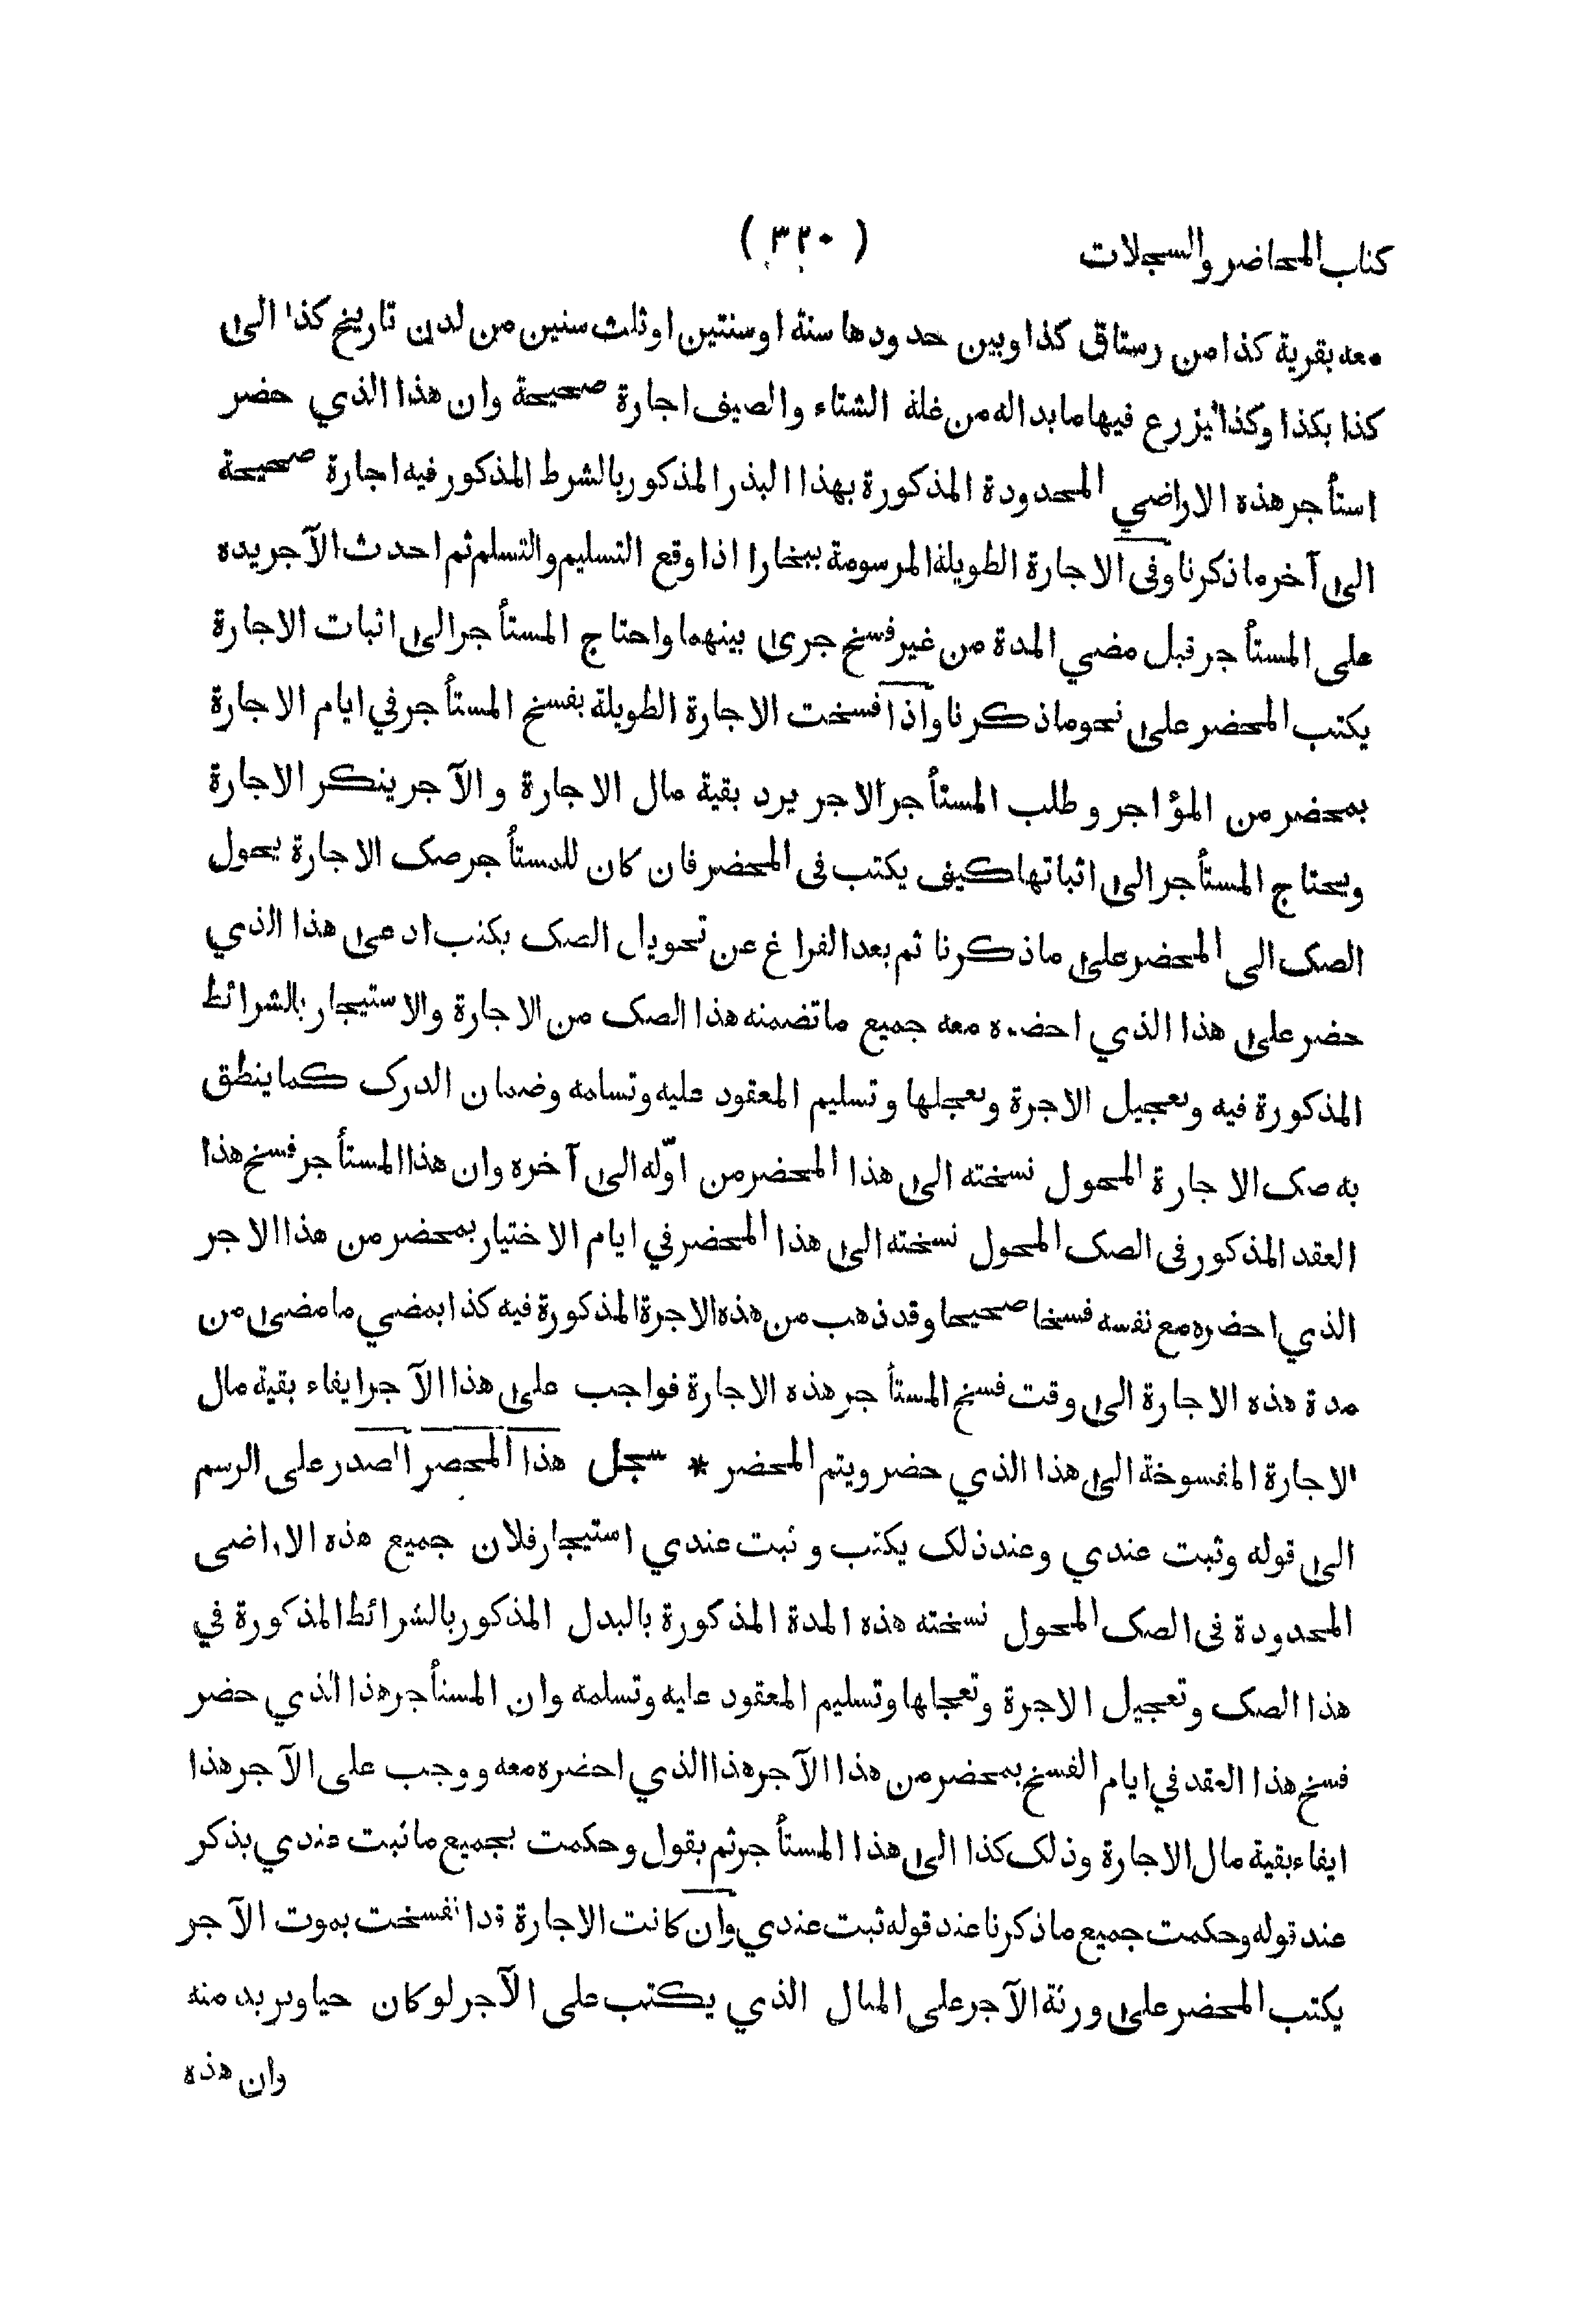 كتاب المحاضر والسجلات ( ٣٢٠ )
معه بقرية كذا من رستاق كذا وبين حدودها سنة او سنتين او ثلث سنين من لدن تاريخ كذا الى
كذا بكذا وكذا ليزرع فيها ما بدا له من غلة الشتاء والصيف اجارة صحيحة وان هذا الذي حضر
استأجر هذه الاراضي المحدودة المذكورة بهذا البذر المذكور بالشرط المذكور فيه اجارة صحيحة
الى آخر ما ذكرنا وفى الاجارة الطويلة المرسومة ببخارا اذا وقع التسليم والتسلم ثم احدث الآجر يده
على المستأجر قبل مضي المدة من غير فسخ جرى بينهما واحتاج المستأجر الى اثبات الاجارة
يكتب المحضر على نحو ما ذكرنا واذا فسخت الاجارة الطويلة بفسخ المستأجر في ايام الاجارة
بمحضر من المؤاجر وطلب المستأجر الاجر يرد بقية مال الاجارة والآجر ينكر الاجارة
ويحتاج المستأجر الى اثباتها كيف يكتب فى المحضر فان كان للمستأجر صك الاجارة يحول
الصك الى المحضر على ما ذكرنا ثم بعد الفراغ عن تحويل الصك يكتب ادعى هذا الذي
حضر على هذا الذي احضره معه جميع ما تضمنه هذا الصك من الاجارة والاستيجار بالشرائط
المذكورة فيه وتعجيل الاجرة وتعجلها وتسليم المعقود عليه وتسلمه وضمان الدرك كما ينطق
به صك الاجارة المحول نسخته الى هذا المحضر من اوّله الى آخره وان هذا المستأجر فسخ هذا
العقد المذكور فى الصك المحول نسخته الى هذا المحضر في ايام الاختيار بمحضر من هذا الاجر
الذي احضره مع نفسه فسخا صحيحا وقد ذهب من هذه الاجرة المذكورة فيه كذا بمضي ما مضى من
مدة هذه الاجارة الى وقت فسخ المستأجر هذه الاجارة فواجب على هذا الآجر ايفاء بقية مال
الاجارة المفسوخة الى هذا الذي حضر ويتم المحضر * سجل هذا المحضر الصدر على الرسم
الى قوله وثبت عندي وعند ذلك يكتب وثبت عندي استيجار فلان جميع هذه الاراضى
المحدودة فى الصك المحول نسخته هذه المدة المذكورة بالبدل المذكور بالشرائط المذكورة في
هذا الصك وتعجيل الاجرة وتعجلها وتسليم المعقود عليه وتسلمه وان المستأجر هذا الذي حضر
فسخ هذا العقد في ايام الفسخ بمحضر من هذا الآجر هذا الذي احضره معه ووجب على الآجر هذا
ايفاء بقية مال الاجارة وذلك كذا الى هذا المستأجر ثم يقول وحكمت بجميع ما ثبت عندي يذكر
عند قوله وحكمت جميع ما ذكرنا عند قوله ثبت عندي وان كانت الاجارة قد انفسخت بموت الآجر
يكتب المحضر على ورثة الآجر على المثال الذي يكتب على الآجر لو كان حيا ويريد منه
وان هذه